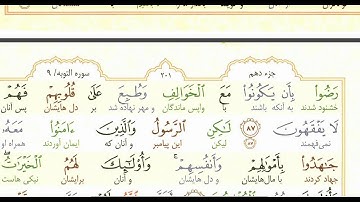 سوره التوبه/ ۹
۲۰۱
جزء دهم
رَضُوا بِأَن يَكُونُوا مَعَ الْخَوَالِفِ وَطُبِعَ عَلَىٰ قُلُوبِهِمْ فَهُمْ
خشنود شدند به آنکه باشند با واپس ماندگان و مهر نهاده شد بر دل هایشان پس آنان
لَا يَفْقَهُونَ ۸۷ لَٰكِنِ الرَّسُولُ وَالَّذِينَ ءَامَنُوا مَعَهُ
نمی‌فهمند لیکن این پیامبر و آنان که ایمان آوردند همراه او
جَٰهَدُوا بِأَمْوَٰلِهِمْ وَأَنفُسِهِمْ ۚ وَأُولَٰئِكَ لَهُمُ الْخَيْرَٰتُ ۖ
جهاد کردند با مال‌هایشان و دل هایشان و آنان برایشان نیکی هاست